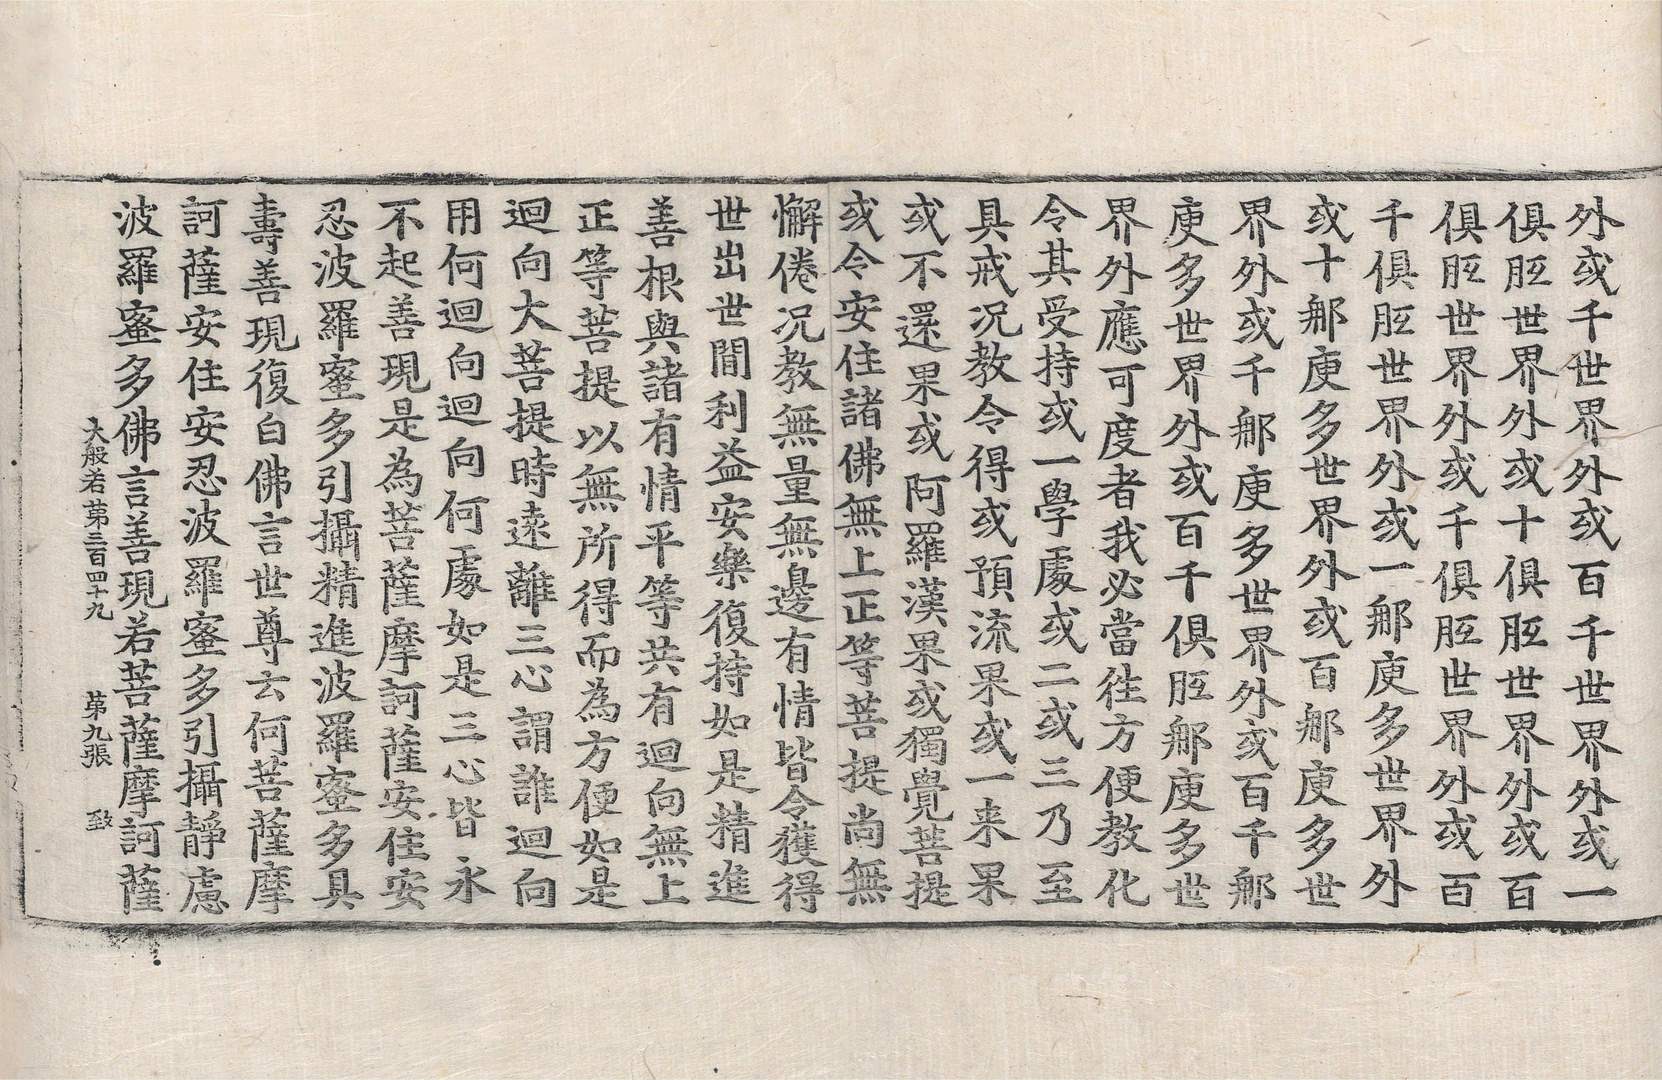 外或千世界外或百千世界外或一
俱胝世界外或十俱胝世界外或百
俱胝世界外或千俱胝世界外或百
千俱胝世界外或一那庾多世界外
或十那庾多世界外或百那庾多世
界外或千那庾多世界外或百千那
庾多世界外或百千俱胝那庾多世
界外應可度者我必當往方便教化
令其受持或一學處或二或三乃至
具戒况教令得或預流果或一来果
或不還果或阿羅漢果或獨覺菩提
或令安住諸佛無上正等菩提尚無
懈倦况教無量無邊有情皆令獲得
世出世間利益安樂復持如是精進
善根與諸有情平等共有迴向無上
正等菩提以無所得而為方便如是
迴向大菩提時遠離三心謂誰迴向
用何迴向迴向何處如是三心皆永
不起善現是為菩薩摩訶薩安住安
忍波羅蜜多引攝精進波羅蜜多具
壽善現復白佛言世尊云何菩薩摩
訶薩安住安忍波羅蜜多引攝靜慮
波羅蜜多佛言善現若菩薩摩訶薩
大般若第三百四十九 第九張 致